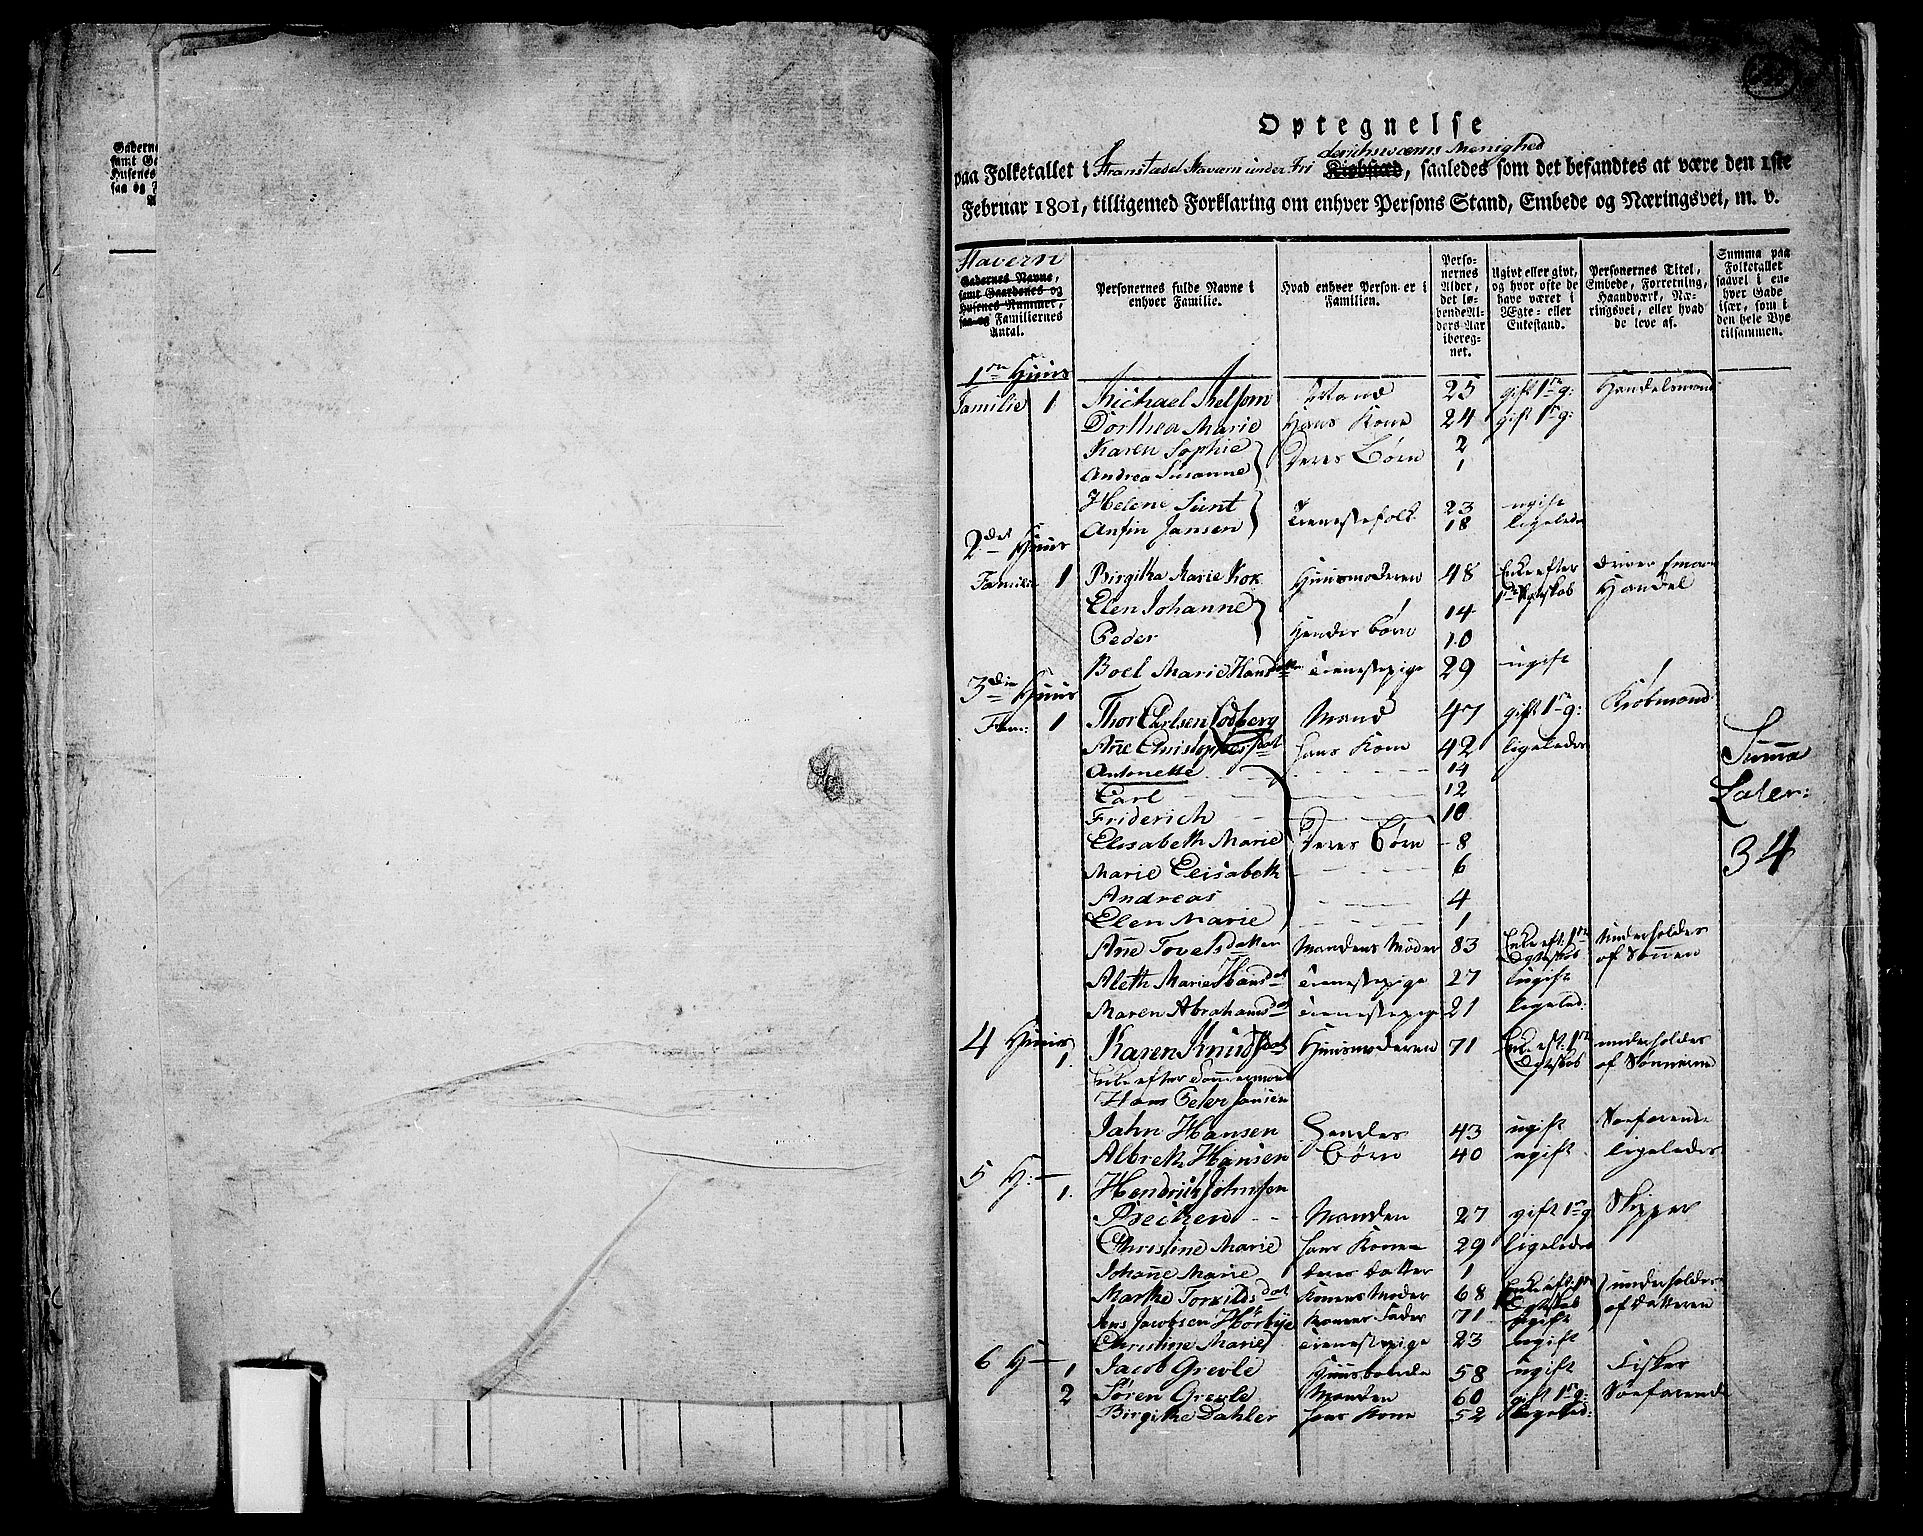 Gaderne
samt Ga
Husenes
saa og F
A
Optegnelse
derichsværns Menighed
paa Folketallet i Stranstædet Staværn under Fri Kiøbstæd, saaledes som det befandtes at være den 1ste
Februar 1801, tilligemed Forklaring om enhver Persons Stand, Embede og Næringsvei, m. v.
Stavern
Gadernes Navne,
samt Gaardenes og
Husenes Nummer,
saa og Familiernes
Antal.
Personernes fulde Navne i
enhver Familie.
Hvad enhver Person er i
Familien.
Perso-
nernes
Alder,
det lø-
bende Al-
ders Aar
iberegnet.
Ugivt eller givt,
og hvor ofte de
have været i
Ægte- eller
Enkestand.
Personernes Titel,
Embede, Forretning,
Haandværk, Næ-
ringsvei, eller hvad
de leve af.
Summa paa
Folketallet
saavel i en-
hver Gade
især, som i
den hele Bye
tilsammen.
1ste Huus
Familie 1 Michael Nelsom Mand 25 gift 1ste g: Handelsmand
Dorthea Marie Hans Kone 24 gift 1ste g:
Karen Sophie Deres Børn 2
Andrea Susanne 1
Helene Sunt Tienestefolk 23 ugift
Anfin Jansen 18 ligeledes
2det Huus
Familie 1 Birgitha Marie Kok Huusmoderen 48 Enke efter 1ste Egteskab driver Smaa Handel
Elen Johanne 14
Peder Hendes Børn 10
Boel Marie Hansdatter tienestepige 29 ugift
3die Huus
Fam: 1 Thor Carlsen Lodberg Mand 47 gift 1ste g: Kiøbmand
Añe Christophersdat hans Kone 42 ligeledes
Antonette 14
Carl 12
Friderich 10
Elisabeth Marie Deres Børn 8
Marie Elisabeth 6
Andreas 4
Elen Marie 1
Añe Tovelsdatter Mandens Moder 83 Enke eft: 1ste Egteskab Underholdes af Sønnen
Aleth Marie Hansdat tienestepige 27 ugift
Maren Abrahamsdat tienestepige 21 ligeled:
Suma
Later:
34
4 Huus 1. Karen Knudsdat Huusmoderen 71 Enke eft: 1ste Egteskab underholdes af Sønnerne
Enke efter Tømmermand
Hans Peter Jansen
Jahn Hansen Hendes 43 ugift Søefarende
Albreth Hansen Børn 40 ugift ligeledes
5 H: 1. Hendrich Johnsen
Brecken Manden 27 gift 1ste g Skipper
Christine Marie hans Kone 29 ligeledes
Johañe Marie deres Datter 1
Marthe Torkildsdat Konens Moder 68 Enke eft: 1ste Egteskab underholdes
Jens Jacobsen Hørbye Konens Fader 71 ugift af Datteren
Christine Marie tienestepige 23 ugift
6 H 1 Jacob Grevle Huusbonde 58 ugift Fisker
2 Søren Grevle Manden 60 gift 1ste g: Søefarende
Birgithe Dahler hans Kone 52 ligeled: